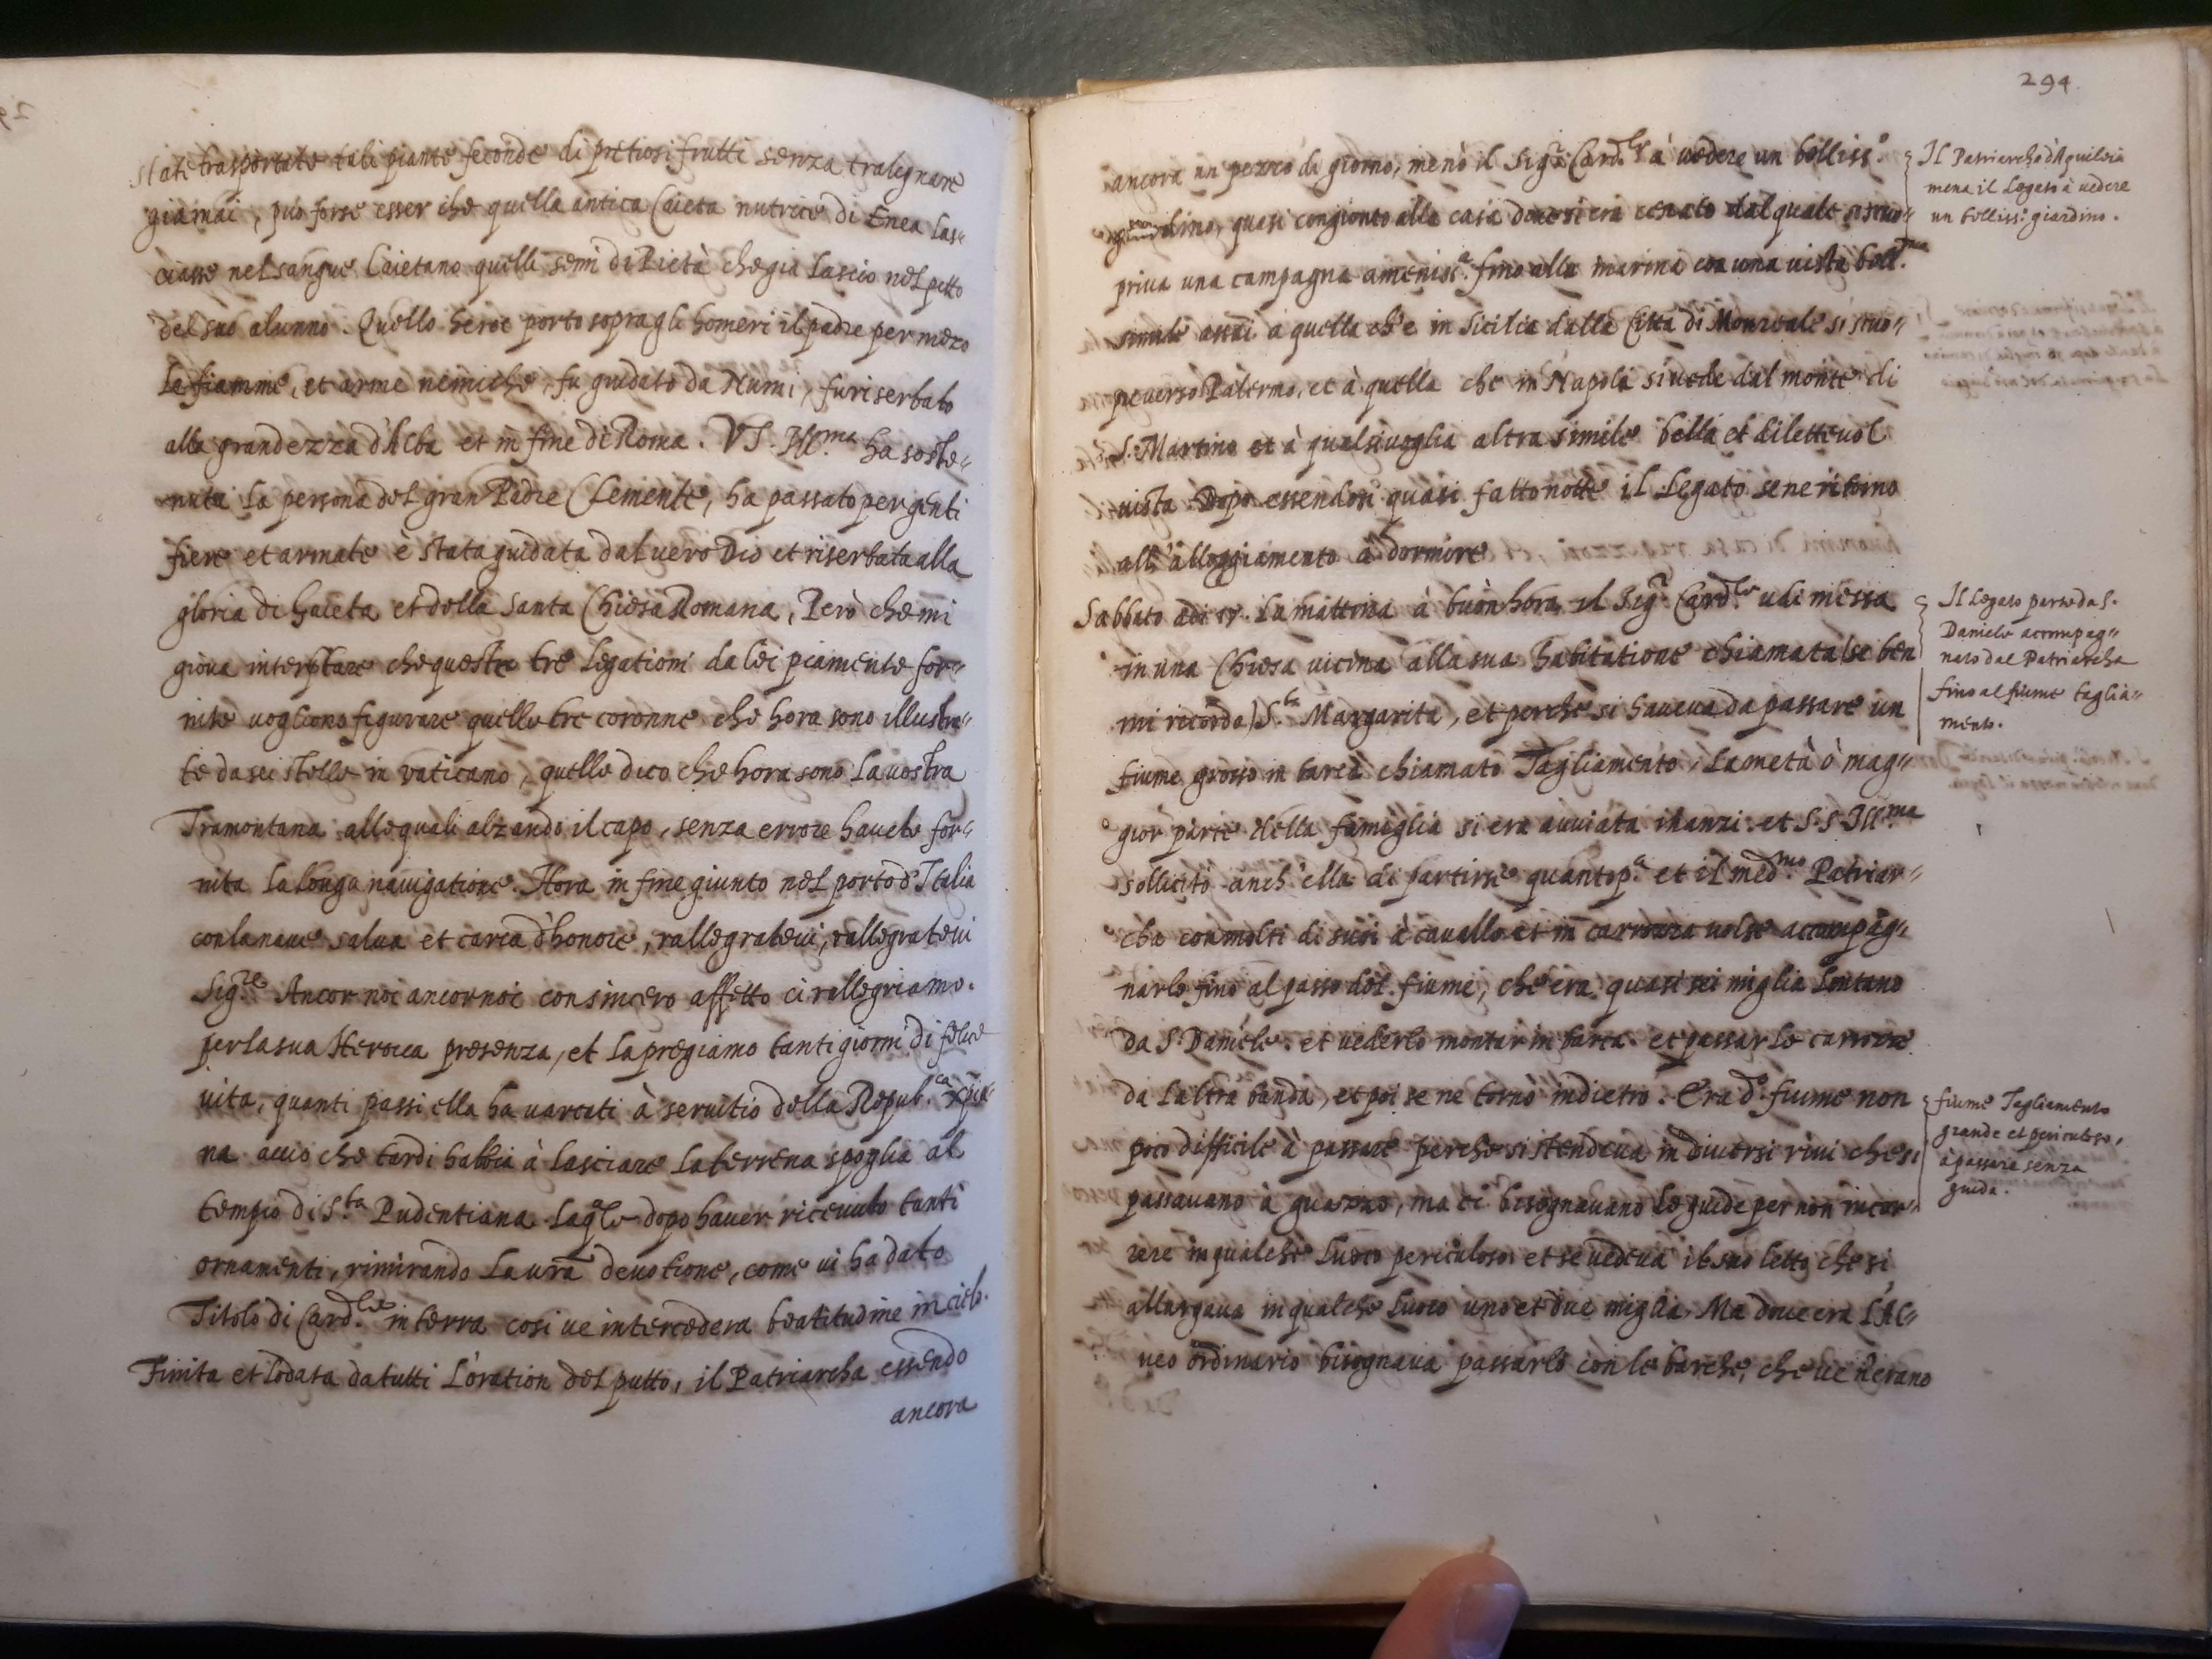 stati trasportate tali piante feconde di pretiosi frutti senza tralegnare
giamai, può forse esser che quella antica Caieta nutrice di Enea las„
ciasse nel sangue Caietano quelli semi di Pietà che gia lascio nel petto
del suo alunno. Quello heroe porto sopra gli homeri il padre per mezo
le fiamme, et arme nemiche, fu guidato da Numi, fu riserbato
alla grandezza d'Alba et in fine di Roma. VS. Ill.ma ha soste„
nuta la persona del gran Padre Clemente, ha passato per genti
fiere et armate è stata guidata dal vero Dio et riserbata alla
gloria di Gaieta et della Santa Chiesa Romana, Però che mi
giova interptare che queste tre legationi da lei piamente for„
nite vogliono figurare quelle tre coronne che hora sono illustra„
te da sei stelle in vaticano, quelle dico che hora sono la vostra
Tramontana alle quali alzando il capo, senza errore havete for„
nita la longa navigatione. Hora in fine giunto nel porto d'Italia
con la nave salva et carca d'honore, rallegratevi, rallegratevi
Sig.re Ancor noi ancor noi con sincero affetto ci rallegriamo.
per la sua Heroica presenza, et la pregiamo tanti giorni di felice
vita, quanti passi ella ha varcati à servitio della Repub.ca Xpia„
na accio che tardi habbia à lasciare la terrena spoglia al
tempio di S.ta Pudentiana. la q̃le dopo haver ricevuto tanti
ornamenti, rimirando la vr̃a devotione, come vi ha dato
Titolo di Card.le in terra cosi ve intercedera beatitudine in cielo.
Finita et lodata da tutti l'oration del putto, il Patriarcha essendo
ancora
294.
ancora un pezzo di giorno, menò il Sig.r Card.le à vedere un belliss.o
giardino, quasi congionto alla casa dove si era cenato dal quale si scuo„
priva una campagna ameniss.a fino alla marina con una vista bell.ma
simile assai à quella ch'e in Sicilia dalla Città di Monreale si scuo„
pre verso Palermo, et à quella che in Napoli si vede dal monte di
S. Martino et à qualsivoglia altra simile bella et dilettevol
vista. Dopo essendosi quasi fatto notte il Legato se ne ritorno
all'alloggiamento à dormire
Sabbato adi 17. la mattina à buòn hora, il Sig.r Card.le udi messa
in una Chiesa vicina alla sua habitatione chiamata (se ben
mi ricorda) S.ta Margarita, et perche si haveva da passare un
fiume grosso in barca chiamato Tagliamento, la metà ò mag„
gior parte della famiglia si era avviata inanzi et S.S Ill.ma
sollicitò anch'ella di partirsi quanto p.a et il med.mo Patriar„
cha con molti di suoi à cavallo et in carrozza volse accompag„
narlo fino al passo del fiume, che era quasi sei miglia lontano
da S. Daniele. et vederlo montar in barca et passar le carrozze
da l'altra banda, et poi se ne tornò indietro. Era d.o fiume non
poco difficile à passare perche si stendeva in diversi rivi che si
passavano à guazzo, ma ci bisognavano le guide per non incor„
rere in qualche luoco periculoso. et se vedeva il suo letto che si
allargava in qualche luoco uno et due miglia, Ma dove era l'Al„
veo ordinario bisognava passarlo con le barche, che ve n'erano
Il Patriarcho d'Aquileia
mena il Legato à vedere
un belliss.o giardino.
Il Legato parte da S.
Daniele accompag„
nato dal Patriarcha
fino al fiume Taglia„
mento.
fiume Tagliamento
grande et periculoso,
à passare senza
guida.